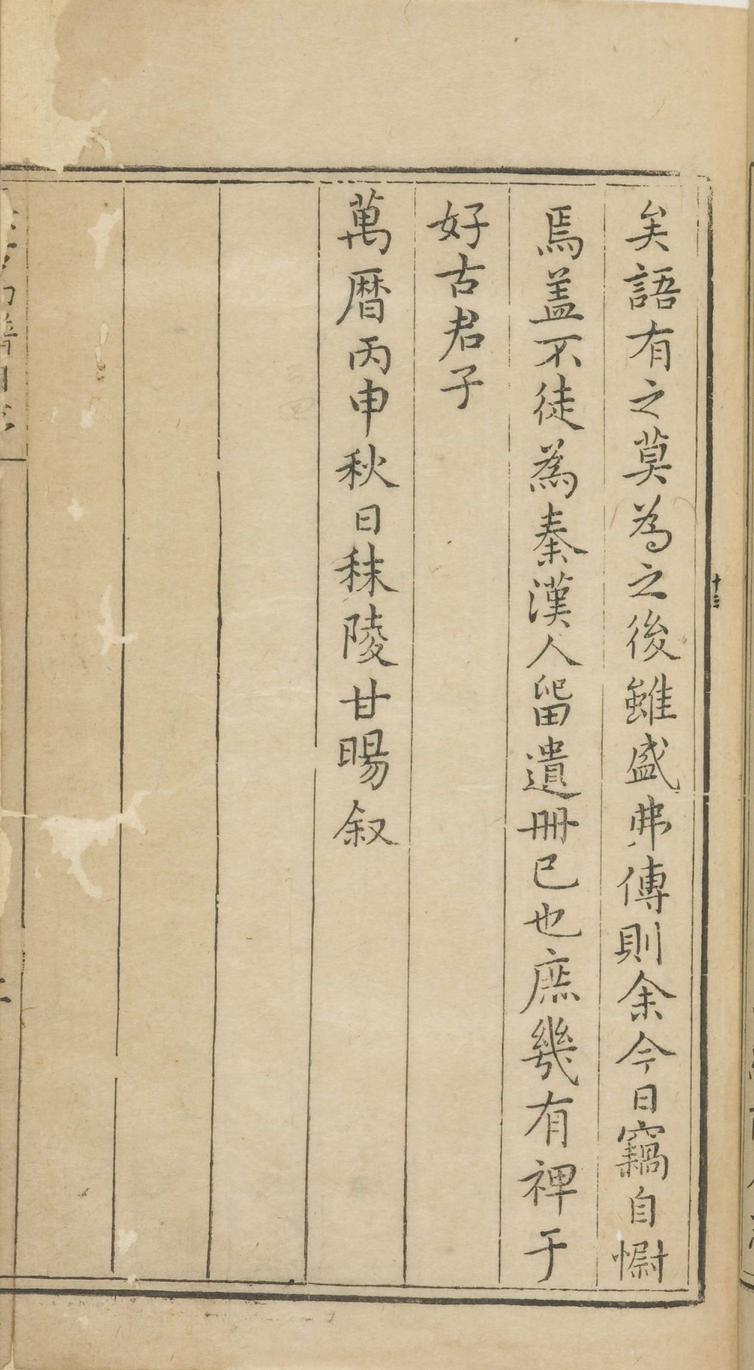 矣語有之莫為之後雖盛弗傳則余今日竊自慰
焉盖不徒為秦漢人留遺冊已也庶幾有裨于
好古君子
萬曆丙申秋日秣陵甘暘叙